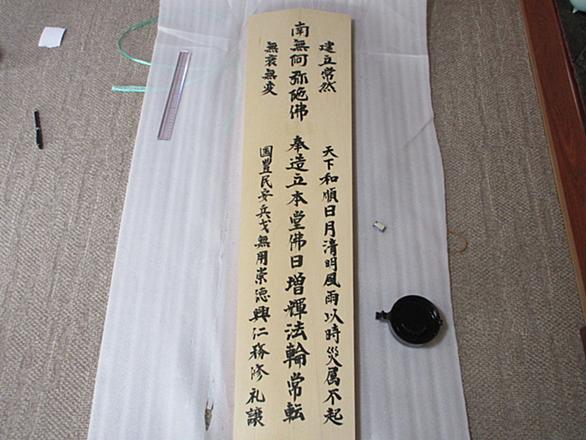 建立常然
南無阿弥陀佛
無衰無変
天下和順日月清明風雨以時災厲不起
奉造立本堂佛日増輝法輪常転
國豊民安兵戈無用崇徳興仁務修礼譲